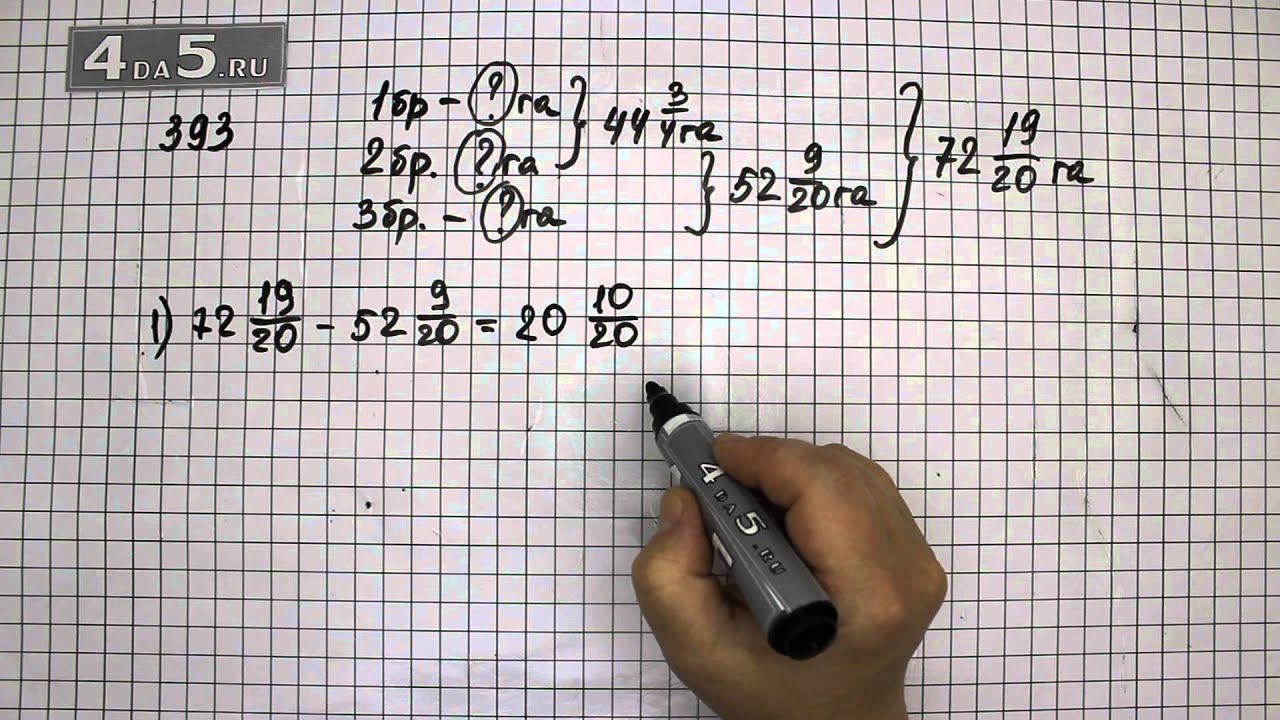 4DA5.RU
393
1бр – ? га } 44 3/4 га
2бр. ? га } 52 9/20 га } 72 19/20 га
3бр. – ? га
1) 72 19/20 – 52 9/20 = 20 10/20
4DA5.RU